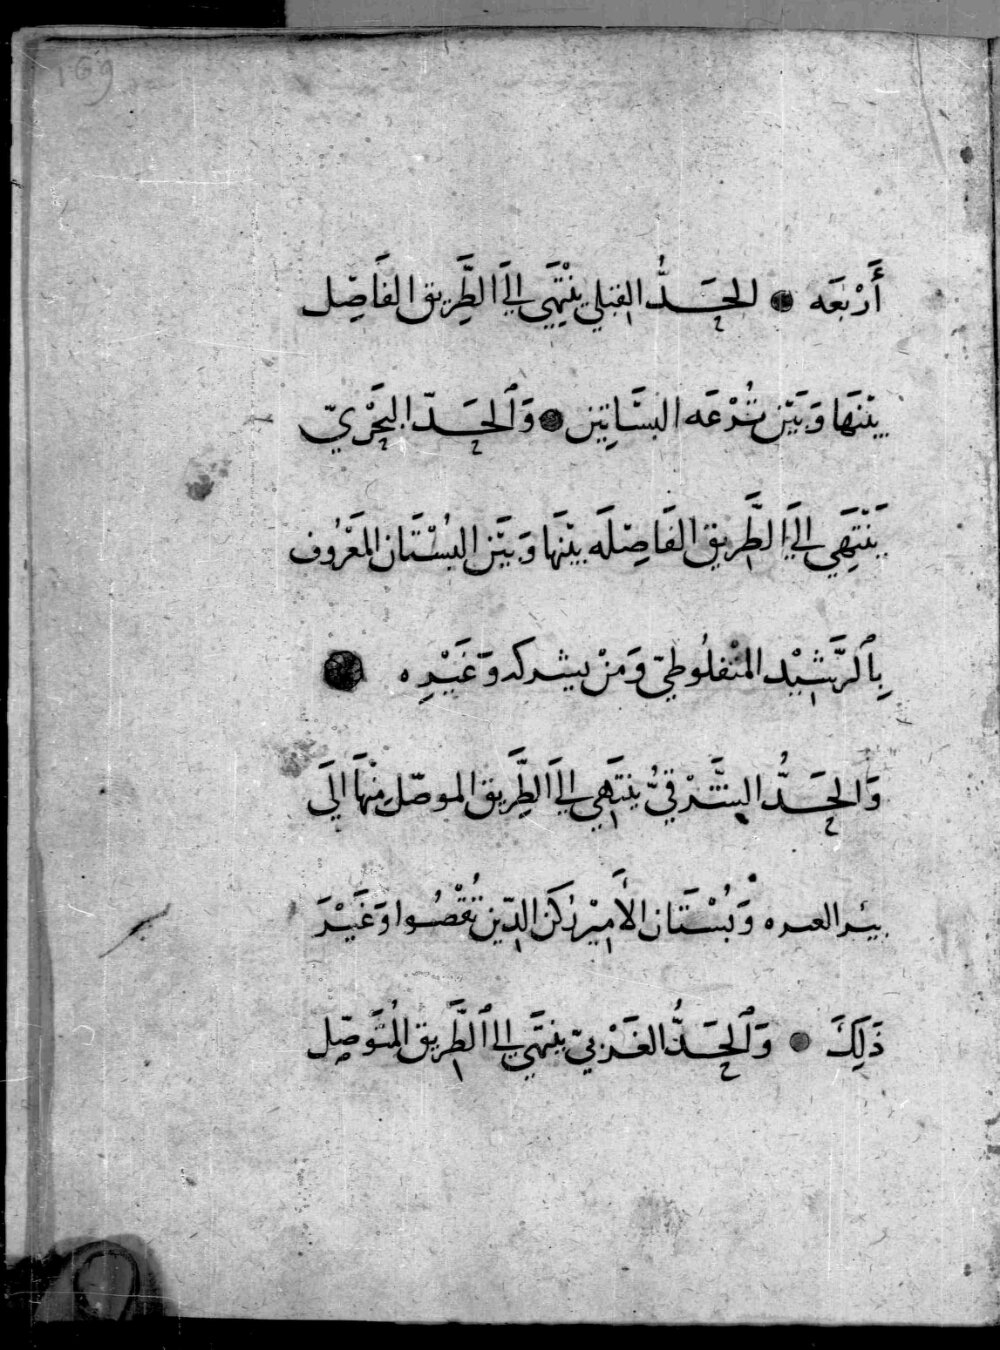 169
أَرْبَعَه ● الحَدُّ القبلي ينْتَهِي إِلَى الطَّرِيق الفَاصِل
بيْنهَا وَبَيْن تُرْعَه البسَاتِين ● وَٱلحَدّ البَحْرِيّ
يَنْتَهِي إِلَى الطَّرِيق الفَاصِلَه بيْنهَا وَبَيْن البُسْتَان المَعْرُوف
بِٱلرَّشِيْد المنْفلُوطيّ وَمَنْ يشركه وَغَيْرِه ●
وَالحَدُّ الشَّرْقيُّ ينتَهِي إِلَى الطَّرِيق الموصّل مِنْهَا الَى
بير العده وَبُسْتَان الأَمِيْر رُكن الدّين وَغَيْرَ
ذَلِكَ ● وَٱلحَدُّ الغَرْبيّ ينتَهِي إِلى ٱلطَّرِيق المُتَوَصِّل